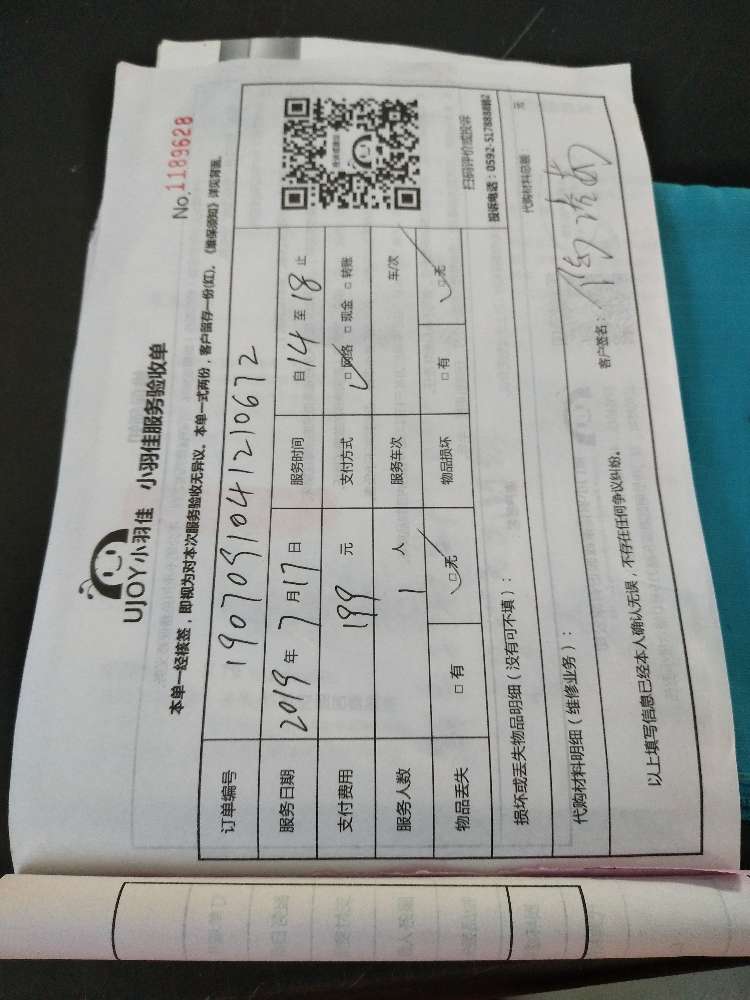 No.1189628
UJOY小羽佳 小羽佳服务验收单
本单一经核签，即视为对本次服务验收无异议。本单一式两份，客户留存一份(红)。《维保须知》详见背面。
订单编号 190709104121067 2
服务日期 2019 年 7 月 17 日 服务时间 自 14 至 18 止
支付费用 199 元 支付方式 □ 网络 □ 现金 □ 转账
服务人数 1 人 服务车次 车/次
物品丢失 □ 有 □ 无 物品损坏 □ 有 □ 无
扫码评价或投诉
损坏或丢失物品明细（没有可不填）：
代购材料明细（维修业务）： 代购材料总额： 元
以上填写信息已经本人确认无误，不存在任何争议纠纷。 客户签名：